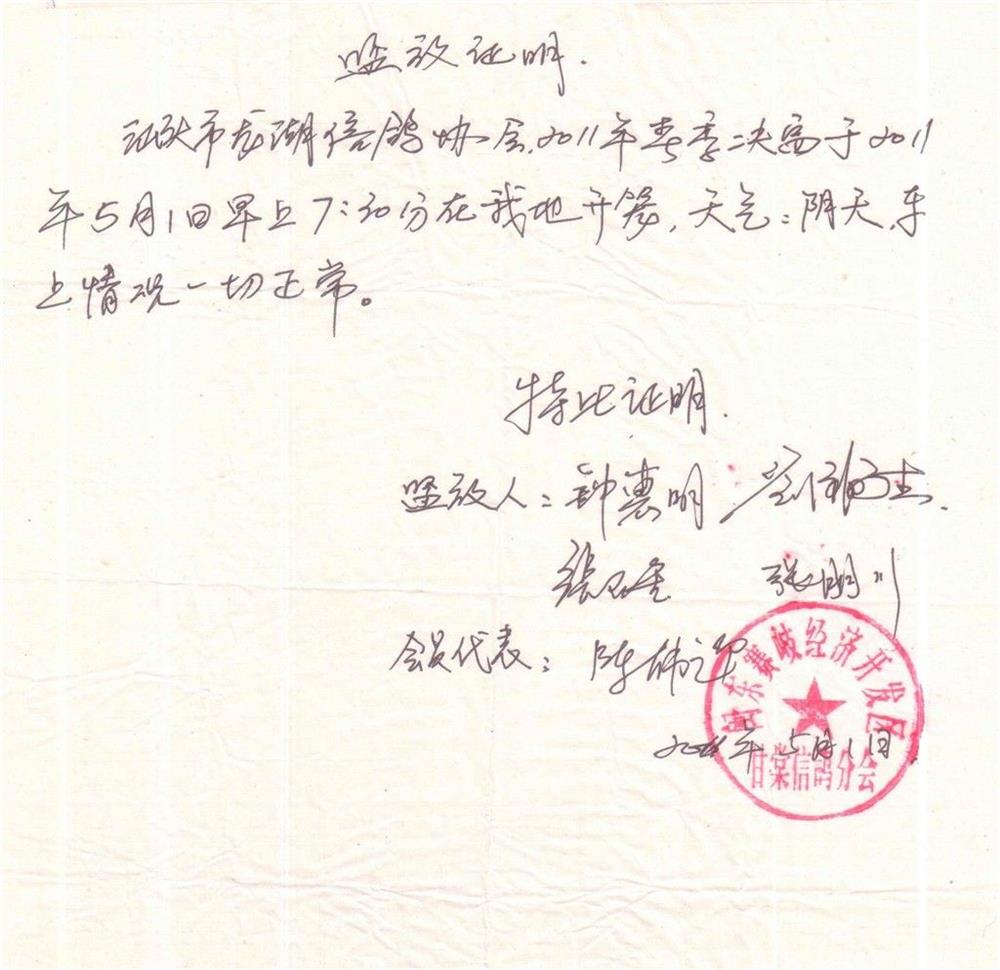 监放证明.
汕头市龙湖信鸽协会,2011年春季决赛于2011
年5月1日早上7:30分在我地开笼,天气:阴天,车
上情况一切正常。
特此证明.
监放人:钟惠明
张明川
会员代表:陈伟
2011年5月1日
闽东赛岐经济开发区
甘棠信鸽分会